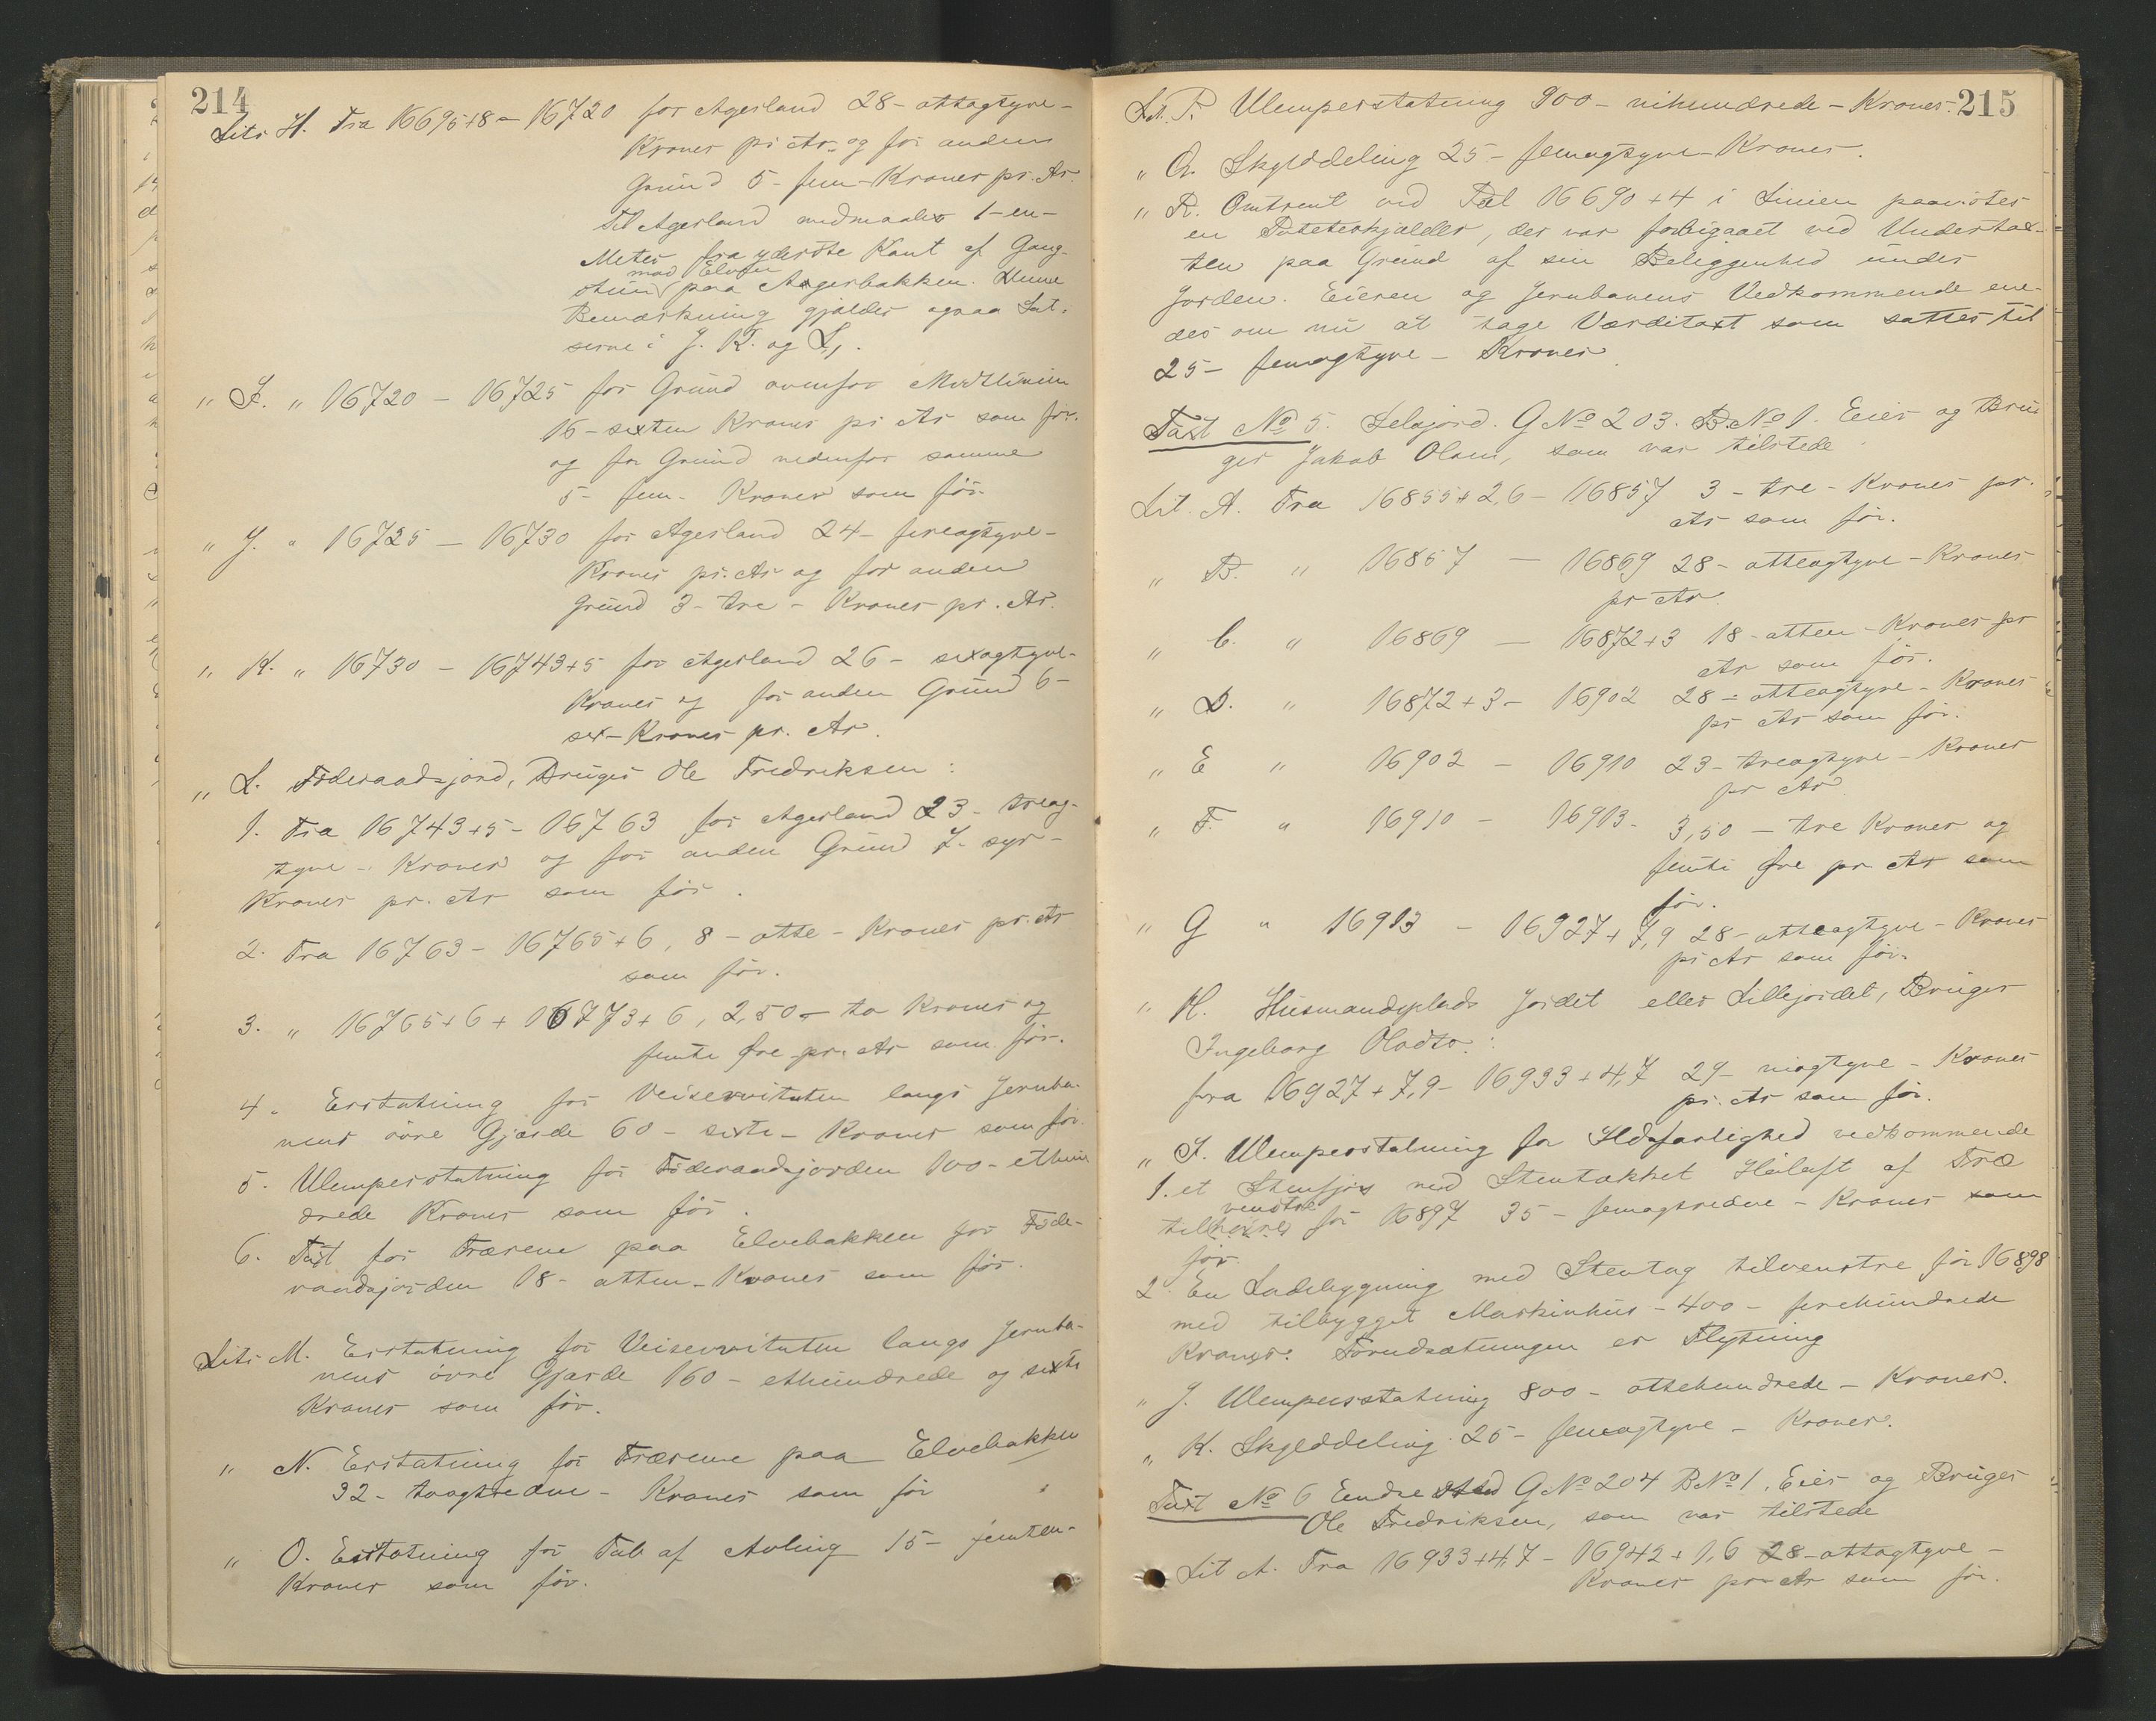 214
Litr H. Fra 16695+8 - 16720 for Agerland 28 - otteogtyve -
Kroner pr Ar og for anden
Grund 5 - fem - Kroner pr. Ar.
Til Agerland medmaales 1 - en -
Meter fra yderste Kant af Gang-
stien mod Elven paa Aagerbakken. Denne
Bemærkning gjælder ogsaa Sat-
serne i J. K. og L1.
" I. " 16720 - 16725 for Grund ovenfor Midtlinien
16 - sexten Kroner pr Ar som før.
og for Grund nedenfor samme
5 - fem - Kroner som før.
" J. " 16725 - 16730 for Agerland 24 - fireogtyve -
Kroner pr. Ar og for anden
Grund 3 - tre - Kroner pr. Ar.
" K. " 16730 - 16743+5 for Agerland 26 - sexogtyve -
Kroner og for anden Grund 6 -
sex - Kroner pr. Ar.
" L. Føderaadsjord, Bruger Ole Fredriksen:
1. Fra 16743+5 - 16763 for Agerland 23 - treog-
tyve - Kroner og for anden Grund 7 - syv -
Kroner pr. Ar som før.
2. Fra 16763 - 16765+6, 8 - otte - Kroner pr. Ar
som før.
3. " 16765+6 + 16773+6, 2,50 - to Kroner og
femti Øre pr. Ar som før.
4. Erstatning for Veiservituten langs Jernba-
nens øvre Gjærde 60 - sexti - Kroner som før.
5. Ulempeerstatning for Føderaadsjorden 100 - ethun-
drede Kroner som før.
6. Taxt for Trærne paa Elvebakken for Føde-
raadsjorden 18 - atten - Kroner som før.
Litr M. Erstatning for Veiservituten langs Jernba-
nens øvre Gjærde 160 - ethundrede og sexti
Kroner som før.
" N. Erstatning for Trærne paa Elvebakken
32 - toogtredve - Kroner som før
" O. Erstatning for Tab af Avling 15 - femten -
Kroner som før.
215
Lit. P. Ulempeerstatning 900 - nihundrede - Kroner.
" Q. Skylddeling 25 - femogtyve - Kroner.
" R. Omtrent ved Pæl 16690+4 i Linien paavistes
en Poteteskjælder, der var forbigaaet ved Undertax-
ten paa Grund af sin Beliggenhed under
Jorden. Eieren og Jernbanens Vedkommende ene-
des om nu at tage Værditaxt som sattes til
25 - femogtyve - Kroner.
Taxt No 5. Selajord. G No 203. B. No 1. Eier og Bru-
ger Jakob Olsen, som var tilstede
Lit. A. Fra 16855+2,6 - 16857 3 - tre - Kroner pr.
Ar som før.
" B. " 16857 - 16869 28 - otteogtyve - Kroner
pr Ar.
" C. " 16869 - 16872+3 18 - atten - Kroner pr
Ar som før.
" D. " 16872+3 - 16902 28 - otteogtyve - Kroner
pr Ar som før.
" E " 16902 - 16910 23 - treogtyve - Kroner
pr Ar
" F. " 16910 - 16913 - 3,50 - tre Kroner og
femti Øre pr Ar som
før.
" G " 16913 - 16927+7,9 28 - otteogtyve - Kroner
pr Ar som før.
" H. Husmandsplads Jordet eller Lillejordet, Bruger
Ingeborg Olsdtr.:
fra 16927+7,9 - 16933+4,7 29 - niogtyve - Kroner
pr. Ar som før.
" I. Ulempeerstatning for Ildsfarlighed vedkommende
1. et Stenfjøs med Stentækket Høloft af Træ
tilvenstre for 16897 35 - femogtredve - Kroner som
før.
2. En Ladebygning med Stentag tilvenstre for 16898
med tilbygget Maskinhus - 400 - firehundrede
Kroner. Forudsætningen er Flytning
" J. Ulempeerstatning 800 - ottehundrede - Kroner.
" K. Skylddeling 25 - femogtyve - Kroner.
Taxt No 6 Endrested G No 204 B No 1, Eier og Bruger
Ole Fredriksen, som var tilstede
Lit A. Fra 16933+4,7 - 16942+1,6 28 - otteogtyve -
Kroner pr Ar som før.